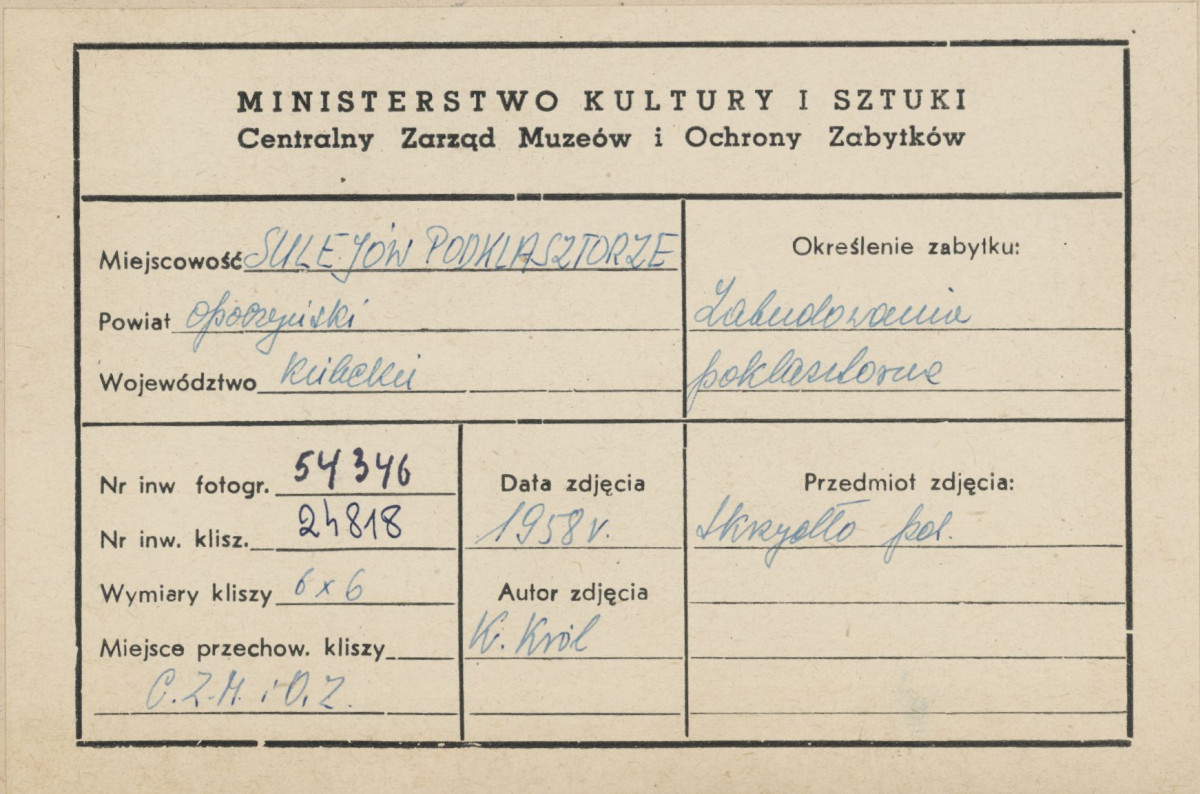 MINISTERSTWO KULTURY I SZTUKI
Centralny Zarząd Muzeów i Ochrony Zabytków
Miejscowość SULEJÓW PODKLASZTORZE
Powiat opoczyński
Województwo kielecki
Określenie zabytku:
Zabudowania
poklasztorne
Nr inw fotogr. 54346
Nr inw. klisz. 24818
Wymiary kliszy 6 x 6
Miejsce przechow. kliszy
C.Z.M. i O.Z.
Data zdjęcia
1958 r.
Autor zdjęcia
K. Król
Przedmiot zdjęcia:
skrzydło poł.